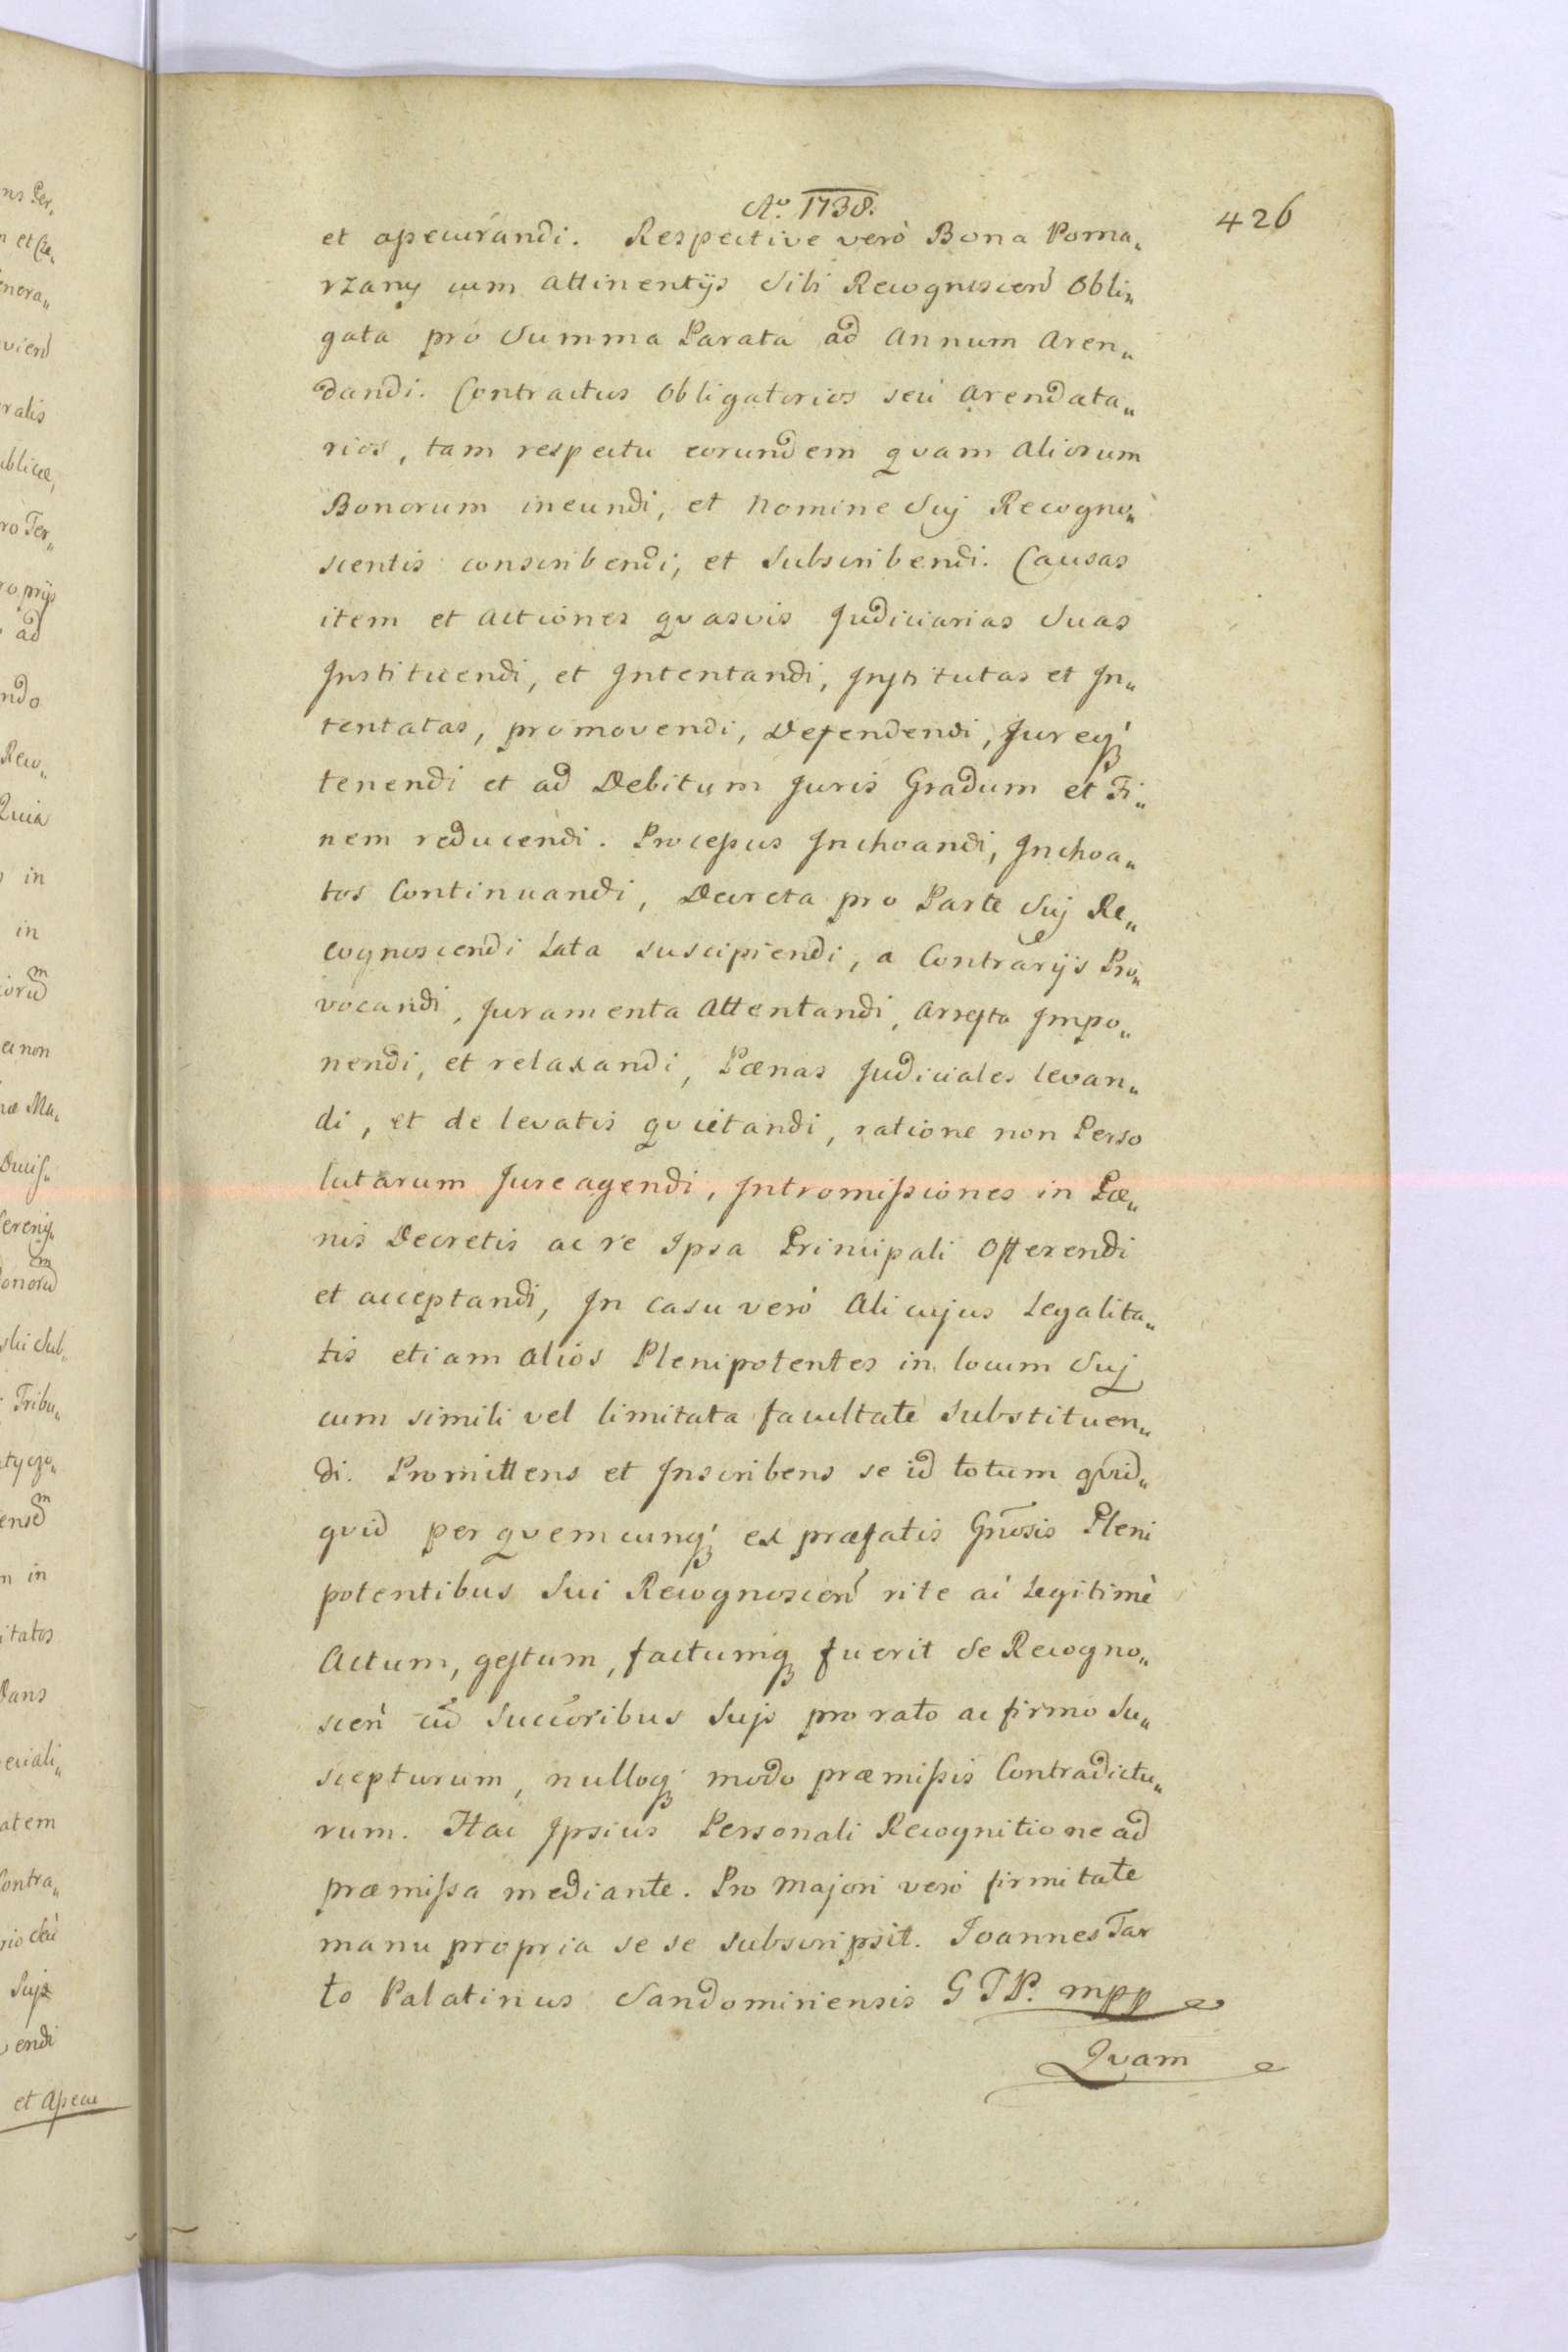 Aº. 1738.
426
et apecurandi. Respective verò Bona Poma„
rzany cum attinentijs Sibi Recognoscen̄ Obli„
gata pro Summa Parata ad annum aren„
dandi. Contractus Obligatorios seù arendata„
rios, tam respectu eorundem quam aliorum
Bonorum ineundi, et Nomine Suj Recogno„
scentis conscribendi, et Subscribendi. Causas
item et actiones quasvis Judiciarias Suas
Instituendi, et Intentandi, Institutas et In„
tentatas, promovendi, Defendendi, Jureq́
tenendi et ad Debitum Juris Gradum et Fi„
nem reducendi. Processus Inchoandi, Inchoa„
tos Continuandi, Decreta pro Parte Suj Re„
cognoscendi Lata suscipiendi, a Contrarijs Pro„
vocandi, Juramenta Attentandi, Arresta Impo„
nendi, et relaxandi, Pœnas Judiciales levan„
di, et de levatis quietandi, ratione non Perso
lutarum Jure agendi, Intromissiones in Pœ„
nis Decretis ac re Ipsa Principali Offerendi
et acceptandi, In casu verò Alicujus Legalita„
tis etiam alios Plenipotentes in locum Suj
cum simili vel limitata facultate Substituen„
di. Promittens et Inscribens se id totum quid„
quid per quemcunq́ ex præfatis Gnōsis Pleni
potentibus Sui Recognoscen̄ rite ac Legitimè
Actum, gestum, factumq fuerit se Recogno„
scen̄ cū Succōribus Sujs pro rato ac firmo Su„
scepturum, nulloq́ modo præmissis Contradictu„
rum. Hac Ipsius Personali Recognitione ad
præmissa mediante. Pro Majori verò firmitate
manu propria se se subscripsit. Joannes Tar
to Palatinus Sandomiriensis G T P. mpp
Quam
ns Per„
enera„
ralis
ublicæ,
ro Ter„
ropnijs
ad
ndo
Reco„
Quia
in
in
a non
Sereniss„
Tribu„
in
itatos
Dans
eciali„
atem
Contra„
Sujs
endi
et Apecu